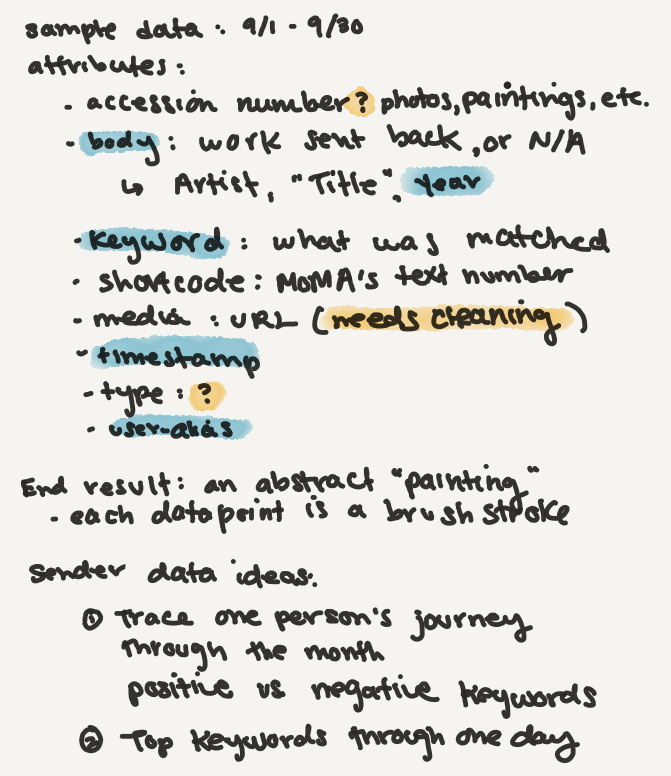 sample data: 9/1 - 9/30
attributes:
- accession number? photos, paintings, etc.
- body: work sent back, or N/A
↳ Artist, "Title", year
- keyword: what was matched
- shortcode: MoMA's text number
- media: URL (needs cleaning)
- timestamp
- type: ?
- user-alias
End result: an abstract "painting"
- each datapoint is a brush stroke
Sender data ideas:
① Trace one person's journey
through the month
positive vs negative keywords
② Top keywords through one day